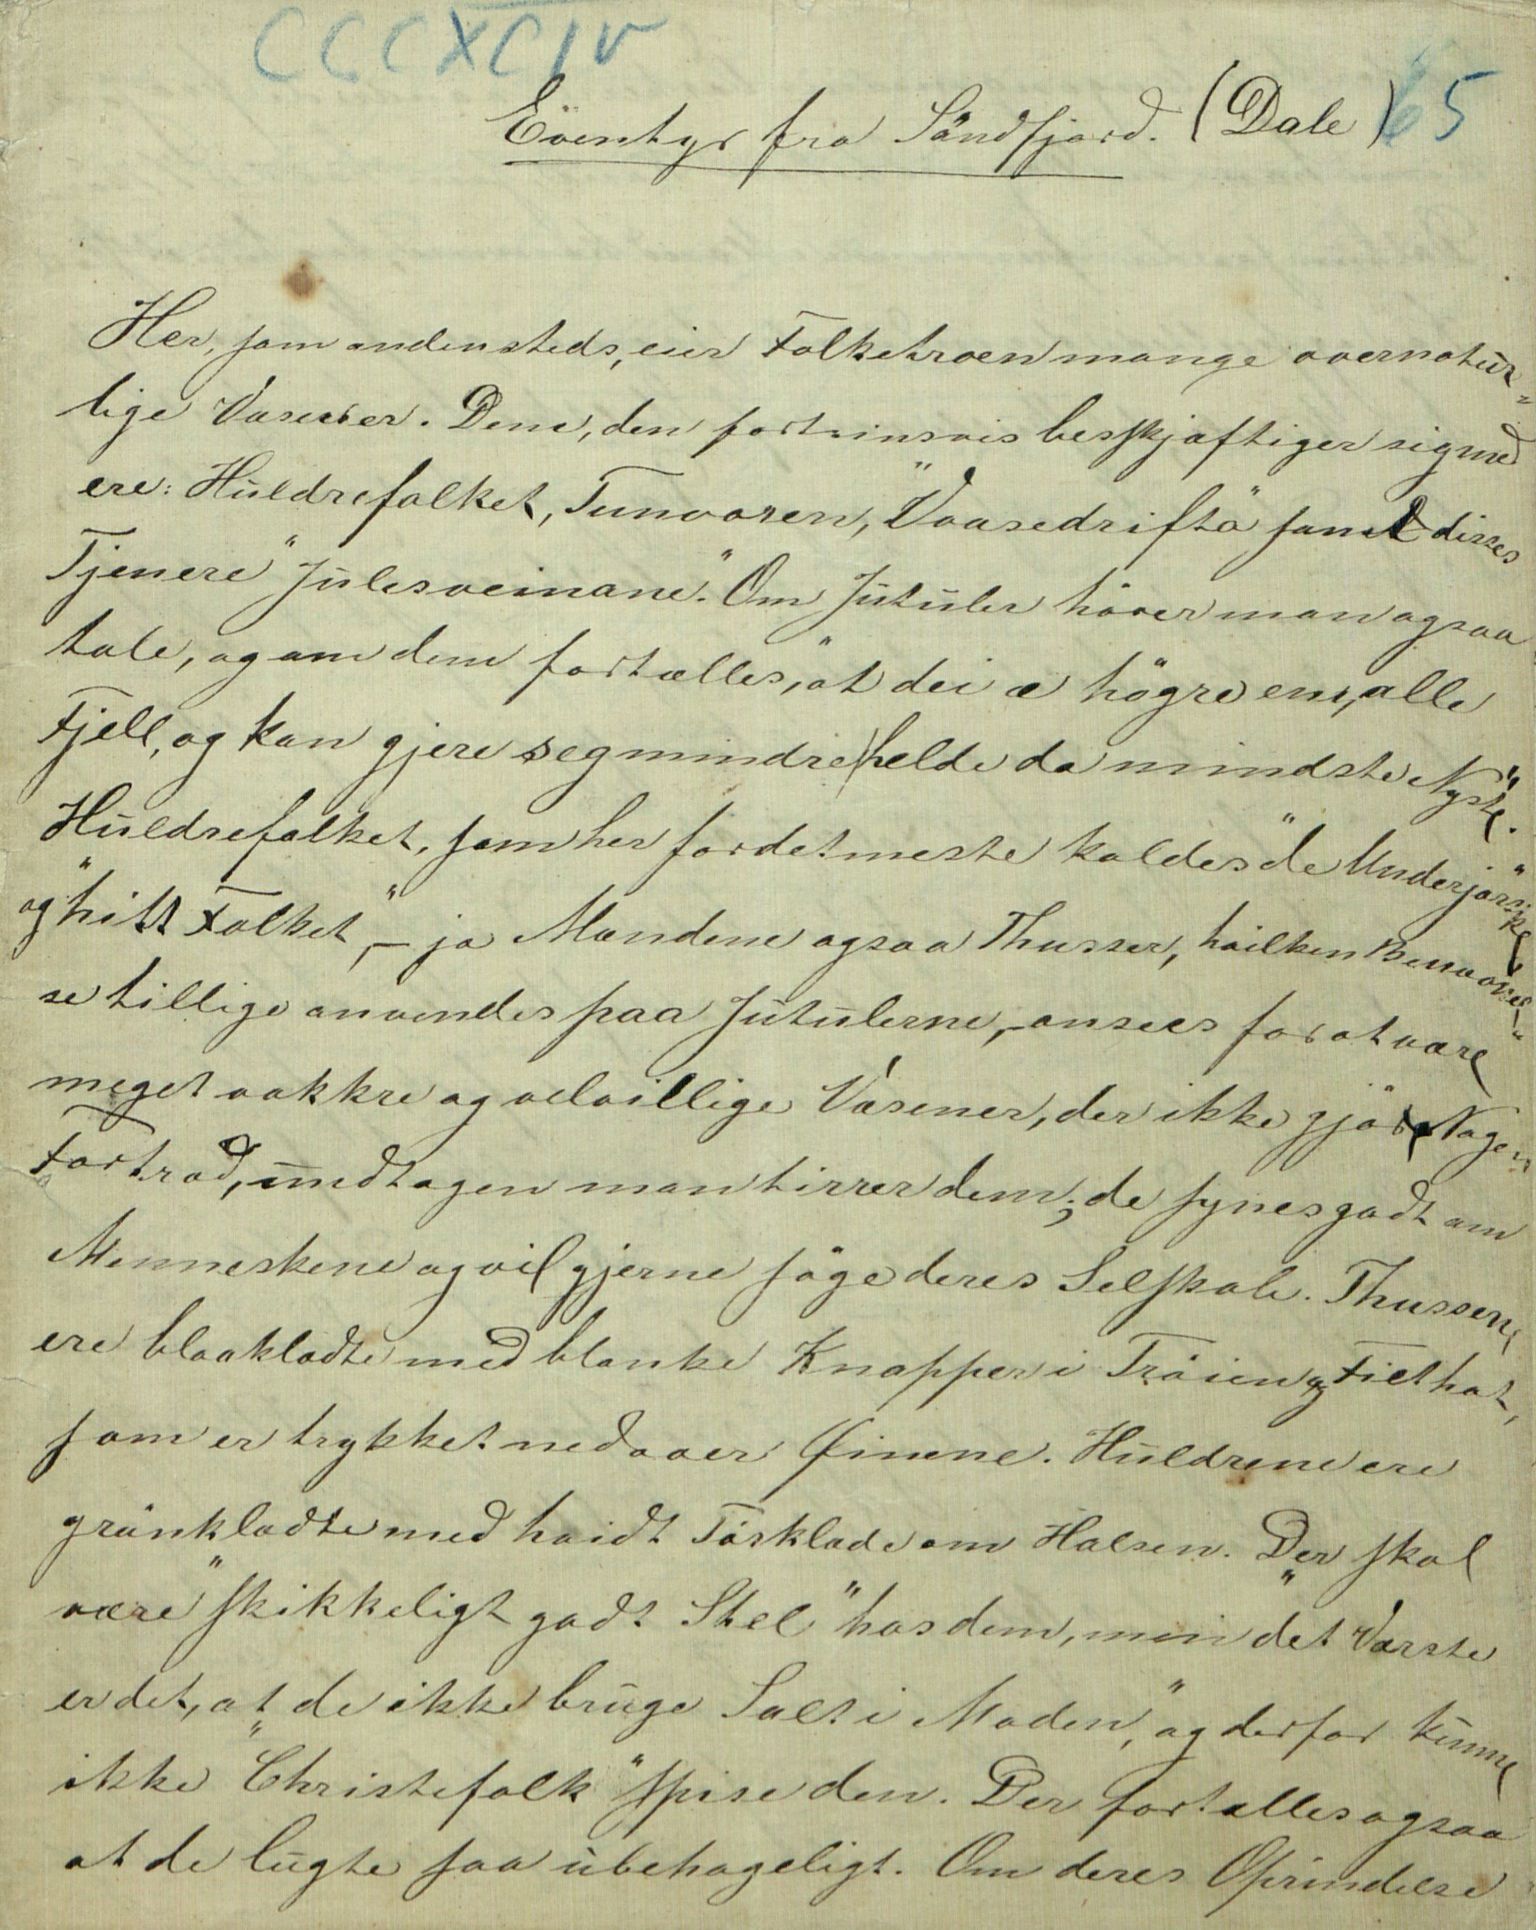 CCCXCIV
Eventyr fra Söndfjord. (Dale) 65
Her, som andensteds, eier Folketroen mange overnatur-
lige Væsener. Dem, den fortrinsvis beskjæftiger sig med
ere: Huldrefolket, Tunvoren, "Vaasedrifta" samt disses
Tjenere "Julesveinane". Om Jutuler hörer man ogsaa
tale, og om dem fortælles, "at dei æ högre em alle
Fjell, og kan gjere seg mindre helde da mindste Nyste".
Huldrefolket, som her fordetmeste kaldes "de Underjorske"
og "hitt Folket", – ja Mændene ogsaa Thusser, hvilken Benævnel-
se tillige anvendes paa Jutulerne, – ansees for at være
meget vakkre og velvillige Væsener, der ikke gjöre Nogen
Fortræd, undtagen man tirrer dem; de synes godt om
Menneskene og vil gjerne söge deres Selskab. Thussene
ere blaaklædte med blanke Knapper i Tröien og Filthat,
som er trykket ned over Öinene. Huldrene ere
grönklædte med hvidt Törklæde om Halsen. Der skal
være "skikkeligt godt Stel" hos dem, men "det Værste
er det, at de ikke bruge Salt i Maden", og derfor kunne
ikke "Christefolk" spise den. Der fortælles ogsaa
at de lugte saa ubehageligt. Om deres Oprindelse